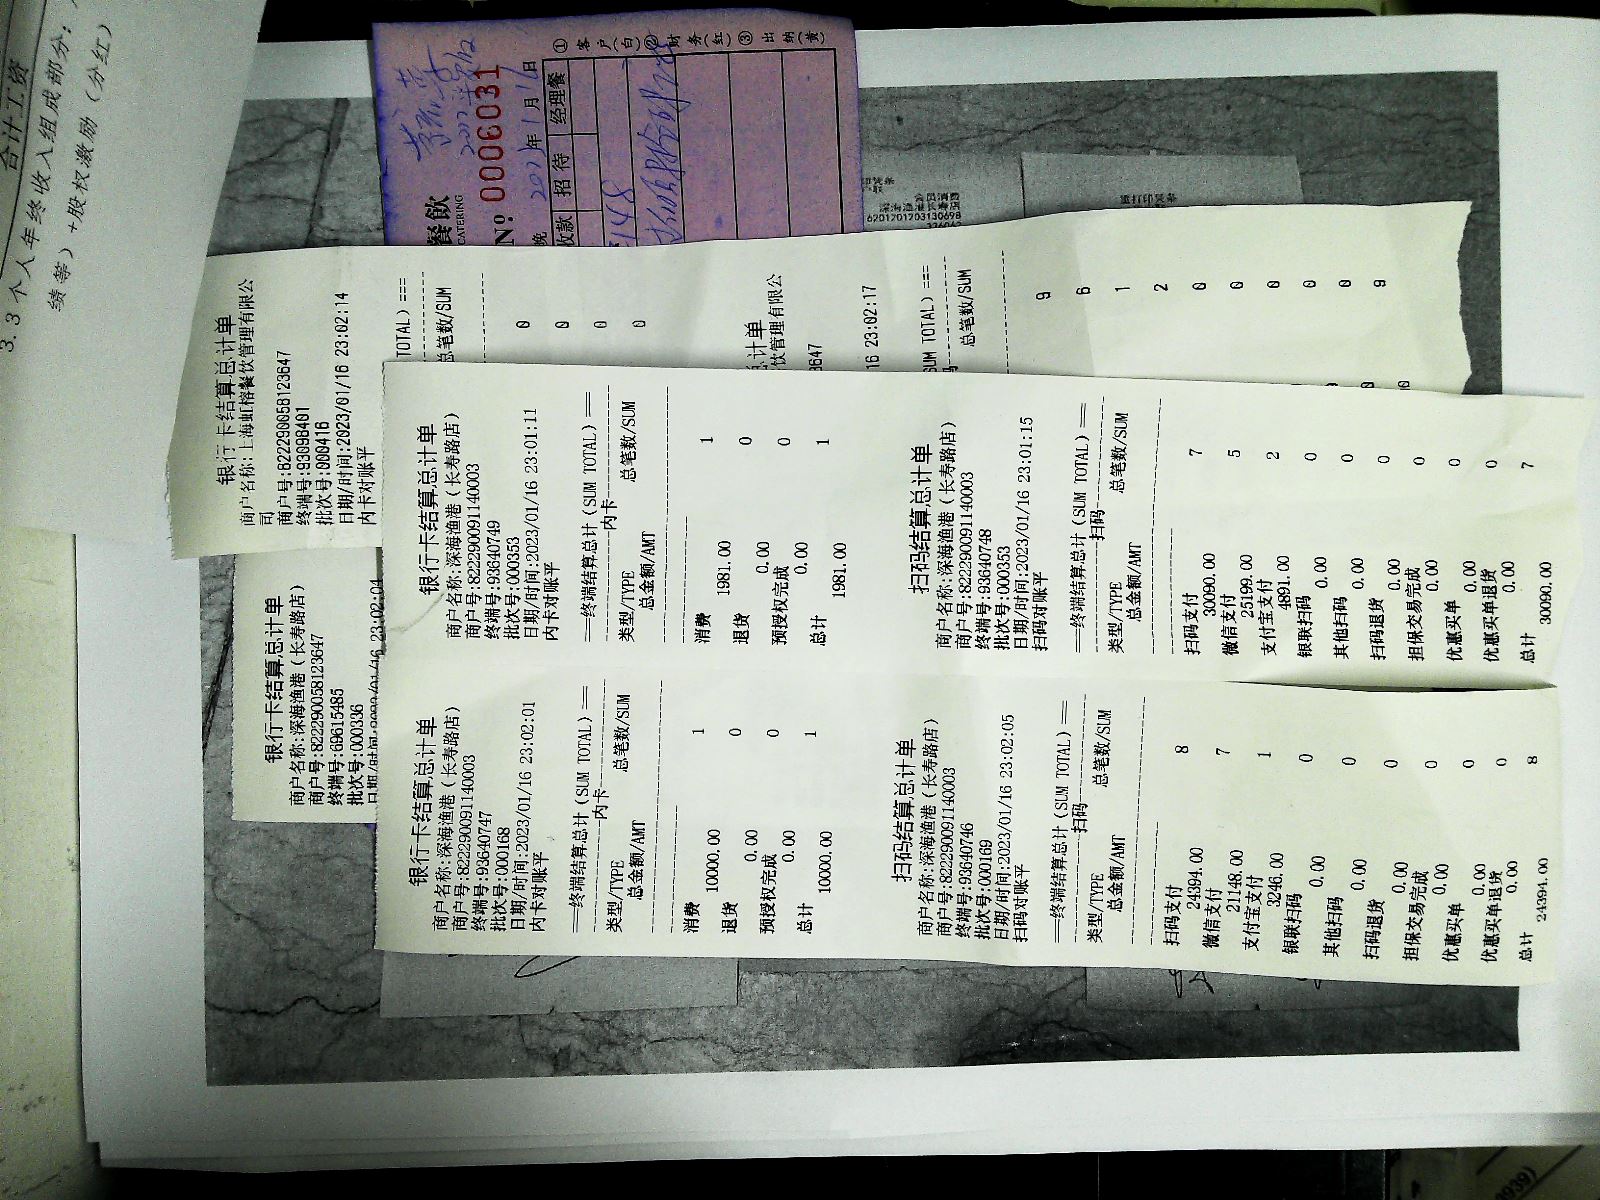 合计工资
3.3 个人年终收入组成部分:
绩等)+股权激励(分红)
餐飲
CATERING
Nº 0006031
2023年1月16日
晚
收款 招待 经理餐
148
① 客户(白) ② 财务(红) ③ 出纳(黄)
6201201203130698
银行卡结算总计单
商户名称:上海虹榕餐饮管理有限公
司
商户号:822290058123647
终端号:93098401
批次号:000416
日期/时间:2023/01/16 23:02:14
内卡对账平
TOTAL) ===
总笔数/SUM
0
0
0
0
总计单
饮管理有限公
3647
16 23:02:17
SUM TOTAL) ===
码
总笔数/SUM
9
6
1
2
0
0
0
0
0
9
银行卡结算总计单
商户名称:深海渔港(长寿路店)
商户号:822290058123647
终端号:69615485
批次号:000336
银行卡结算总计单
商户名称:深海渔港(长寿路店)
商户号:822290091140003
终端号:93640749
批次号:000353
日期/时间:2023/01/16 23:01:11
内卡对账平
==终端结算总计(SUM TOTAL)==
内卡
类型/TYPE 总笔数/SUM
总金额/AMT
消费 1
1981.00
退货 0
0.00
预授权完成 0
0.00
总计 1
1981.00
扫码结算总计单
商户名称:深海渔港(长寿路店)
商户号:822290091140003
终端号:93640748
批次号:000353
日期/时间:2023/01/16 23:01:15
扫码对账平
==终端结算总计(SUM TOTAL)==
扫码
类型/TYPE 总笔数/SUM
总金额/AMT
扫码支付 7
30090.00
微信支付 5
25199.00
支付宝支付 2
4891.00
银联扫码 0
0.00
其他扫码 0
0.00
扫码退货 0
0.00
担保交易完成 0
0.00
优惠买单 0
0.00
优惠买单退货 0
0.00
总计 7
30090.00
银行卡结算总计单
商户名称:深海渔港(长寿路店)
商户号:822290091140003
终端号:93640747
批次号:000168
日期/时间:2023/01/16 23:02:01
内卡对账平
==终端结算总计(SUM TOTAL)==
内卡
类型/TYPE 总笔数/SUM
总金额/AMT
消费 1
10000.00
退货 0
0.00
预授权完成 0
0.00
总计 1
10000.00
扫码结算总计单
商户名称:深海渔港(长寿路店)
商户号:822290091140003
终端号:93640746
批次号:000169
日期/时间:2023/01/16 23:02:05
扫码对账平
==终端结算总计(SUM TOTAL)==
扫码
类型/TYPE 总笔数/SUM
总金额/AMT
扫码支付 8
24394.00
微信支付 7
21148.00
支付宝支付 1
3246.00
银联扫码 0
0.00
其他扫码 0
0.00
扫码退货 0
0.00
担保交易完成 0
0.00
优惠买单 0
0.00
优惠买单退货 0
0.00
总计 8
24394.00